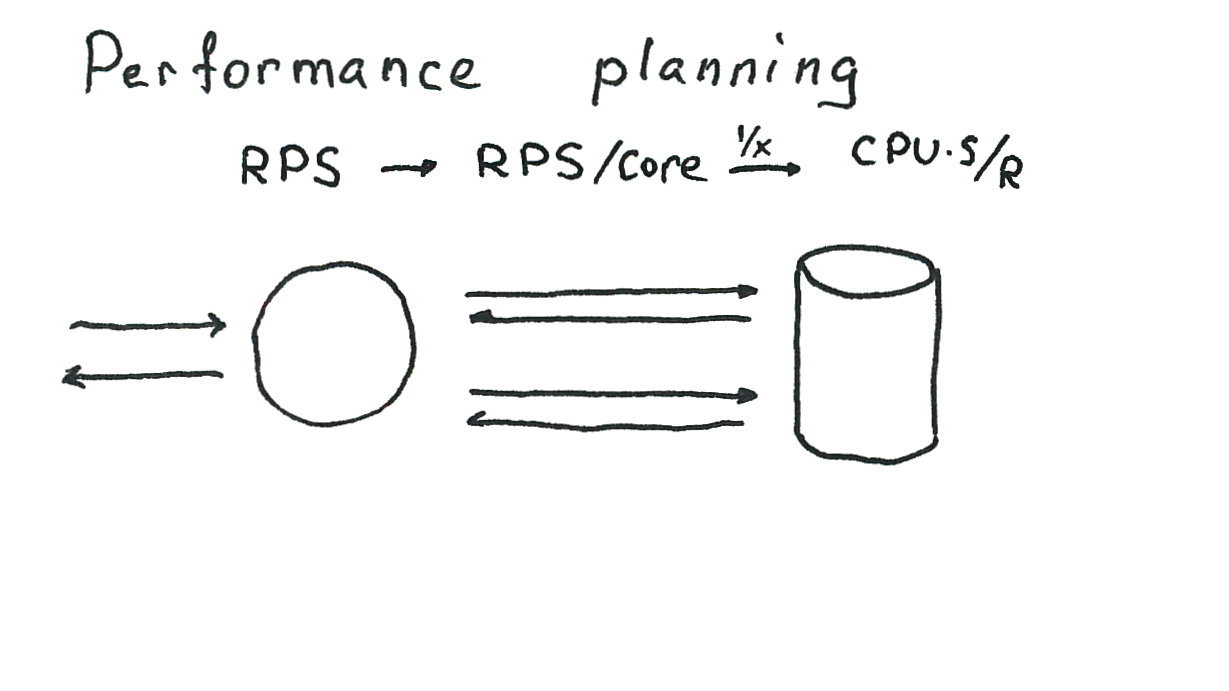 Performance planning
RPS → RPS/Core 1/x → CPU·S/R